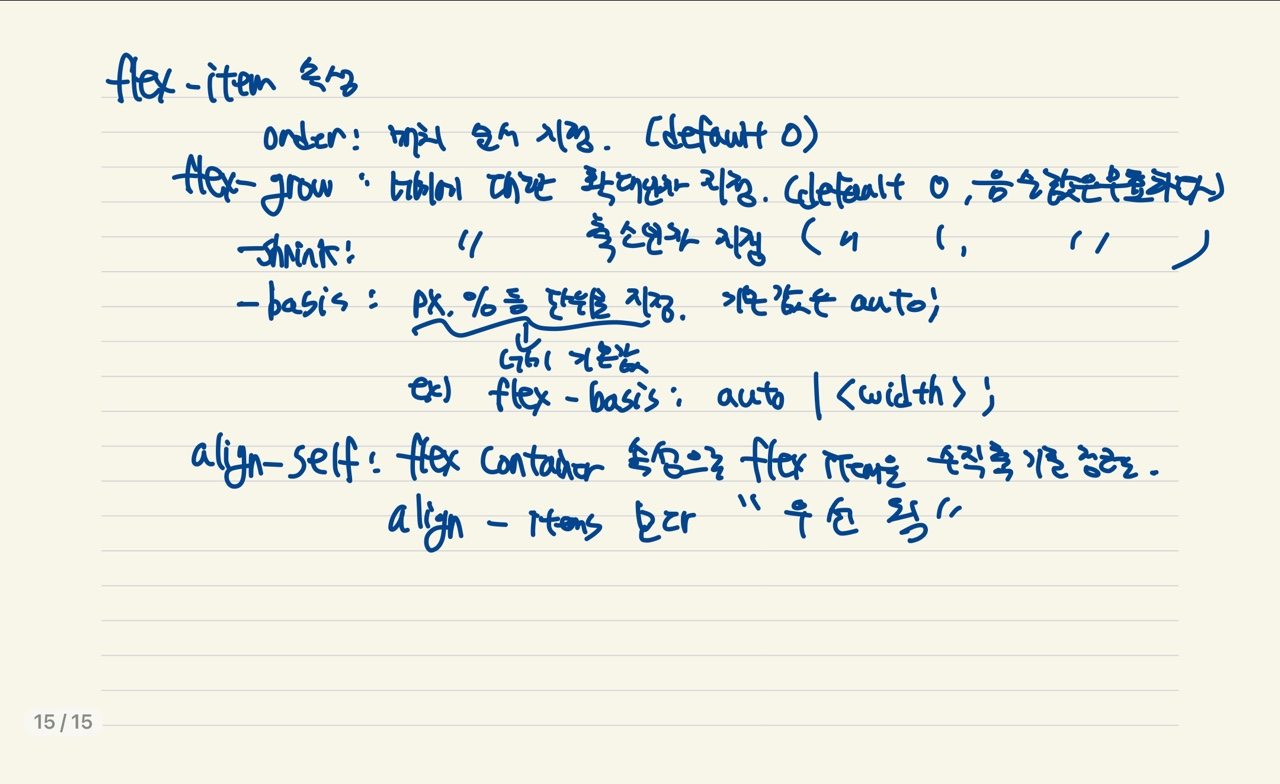 flex-item 속성
order: 배치 순서 지정. (default 0)
flex-grow : 너비에 대한 확대인자 지정. (default 0, 음수값은 무효하다)
-shrink: " 축소인자 지정 ( " 1, " )
-basis : px. % 등 단위를 지정. 기본값은 auto;
너비 기본값
ex) flex-basis: auto | <width> ;
align-self: flex container 속성으로 flex item을 수직축 기준 정렬.
align-items 보다 "우선 왹"
15 / 15